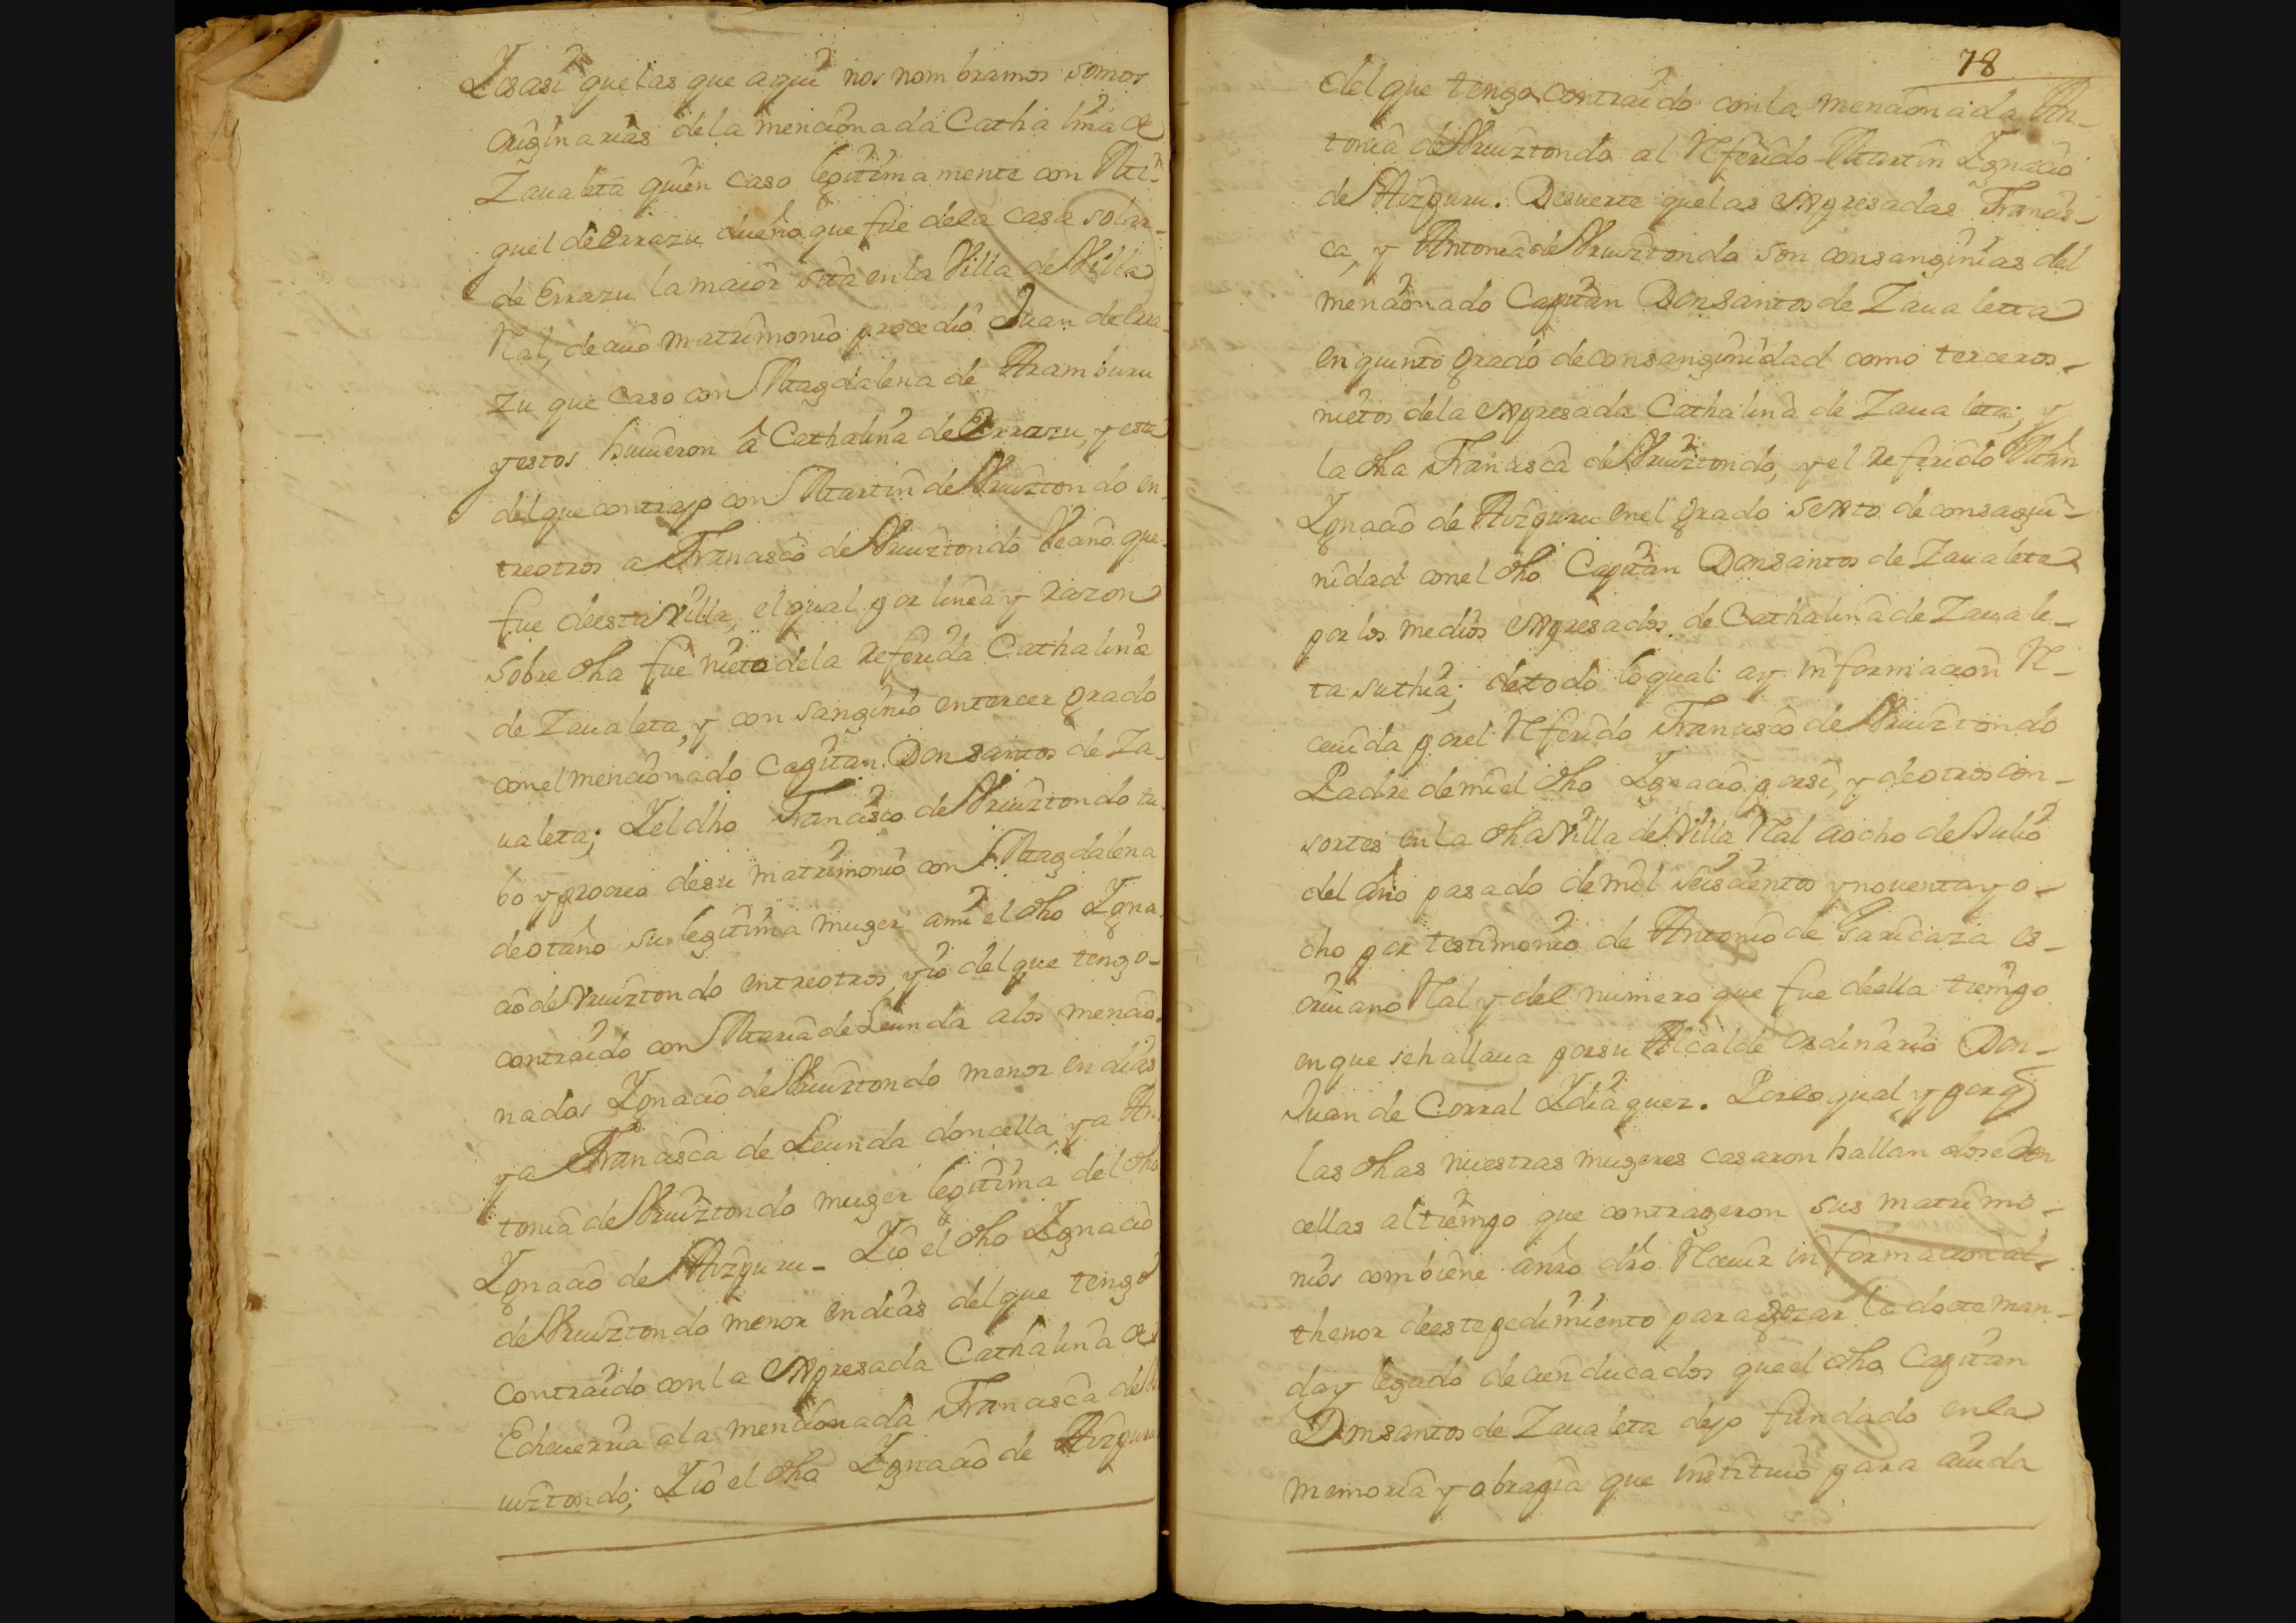 Y es asi que las que aqui nos nombramos somos
originarias dela mencionada Cathalina de
Zaualeta quien caso legitimamente con Mi-
guel de Errazu dueño que fue dela casa solar
de Errazu la maior sita en la Villa de Villa
Ral, de cuio matrimonio procedio Juan de Erra-
zu que caso con Magdalena de Aramburu
y estos huuieron â Cathalina de Errazu, y esta
del que contrajo con Martin de Vruiztondo en-
treotros a Francisco de Vruiztondo Veçino que
fue deesta Villa, el qual por linea y razon
sobre dha fue nieto dela referida Cathalina
de Zaualeta, y consanginio entercer grado
conel mencionado Capitan Don santos de Za-
ualeta; Y el dho Francisco de Vruiztondo tu-
bo y procreo desu matrimonio con Magdalena
de otaño su legitima muger ami el dho Igna-
cio de Vruiztondo entreotros, yio del que tengo
contraido con Maria de Leunda alos mencio-
nados Ignacio de Vruiztondo menor en dias
ya Francisca de Leunda doncella, ya An-
tonia de Vruiztondo muger legitima del dho
Ignacio de Aizpuru- Yio el dho Ignacio
de Vruiztondo menor en dias del que tengo
contraido con la expresada Cathalina de
Echeuerria ala mencionada Francisca de Vr-
uiztondo; Yio el dho Ignacio de Aizpuru
78
del que tengo contraido con la mencionada An-
tonia de Vruiztondo al Rferido Martin Ignacio
de Aizpuru. Desuerte que las expresadas Francis-
ca, y Antonia de Vruiztondo son consanginias del
mencionado Capitan Don santos de Zaualetta
en quinto grado de consanginidad como terceros
nietos dela expresada Cathalina de Zaualeta; y
la dha Francisca de Vruiztondo, y el referido Mrn
Ignacio de Aizpuru enel grado sexto de consagui-
nidad conel dho Capitan Don santos de Zaualeta
por los medios expresados de Cathalina de Zauale-
ta suthia; detodo loqual ay informacion R-
ceuida porel Rferido Francisco de Vruiztondo
Padre demi el dho Ignacio porsi, y deotros con-
sortes en la dha Villa de Villa Ral aocho de Julio
del año pasado demil seiscientos ynoventa y o-
cho por testimonio de Antonio de Garicaza es-
criuano Ral y del numero que fue deella tiempo
enque sehallaua porsu Alcalde ordinario Don
Juan de Corral Ydiaquez. Porloqual y porq
las dhas nuestras mugeres casaron hallandose don
cellas altiempo que contrageron sus matrimo-
nios combiene anro dro Rceuir informacion al
thenor deeste pedimiento para gozar la dote man-
da y legado de cien ducados que el dho Capitan
Don santos de Zaualeta dejo fundado en la
memoria y obrapia que instituio para aiuda